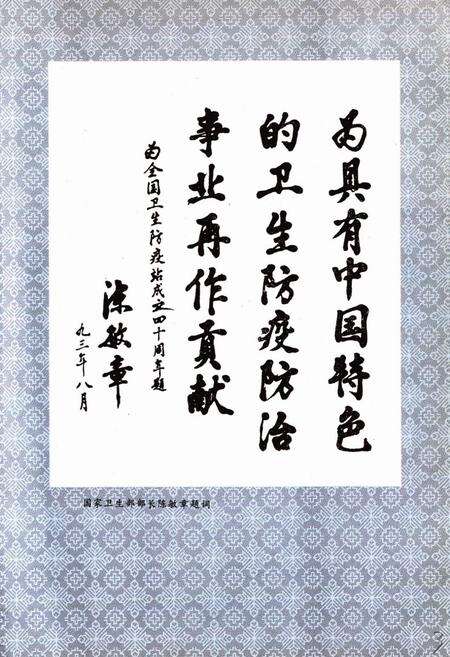 为具有中国特色
的卫生防疫防治
事业再作贡献
为全国卫生防疫站成立四十周年题
陈敏章
九三年八月
国家卫生部部长陈敏章题词